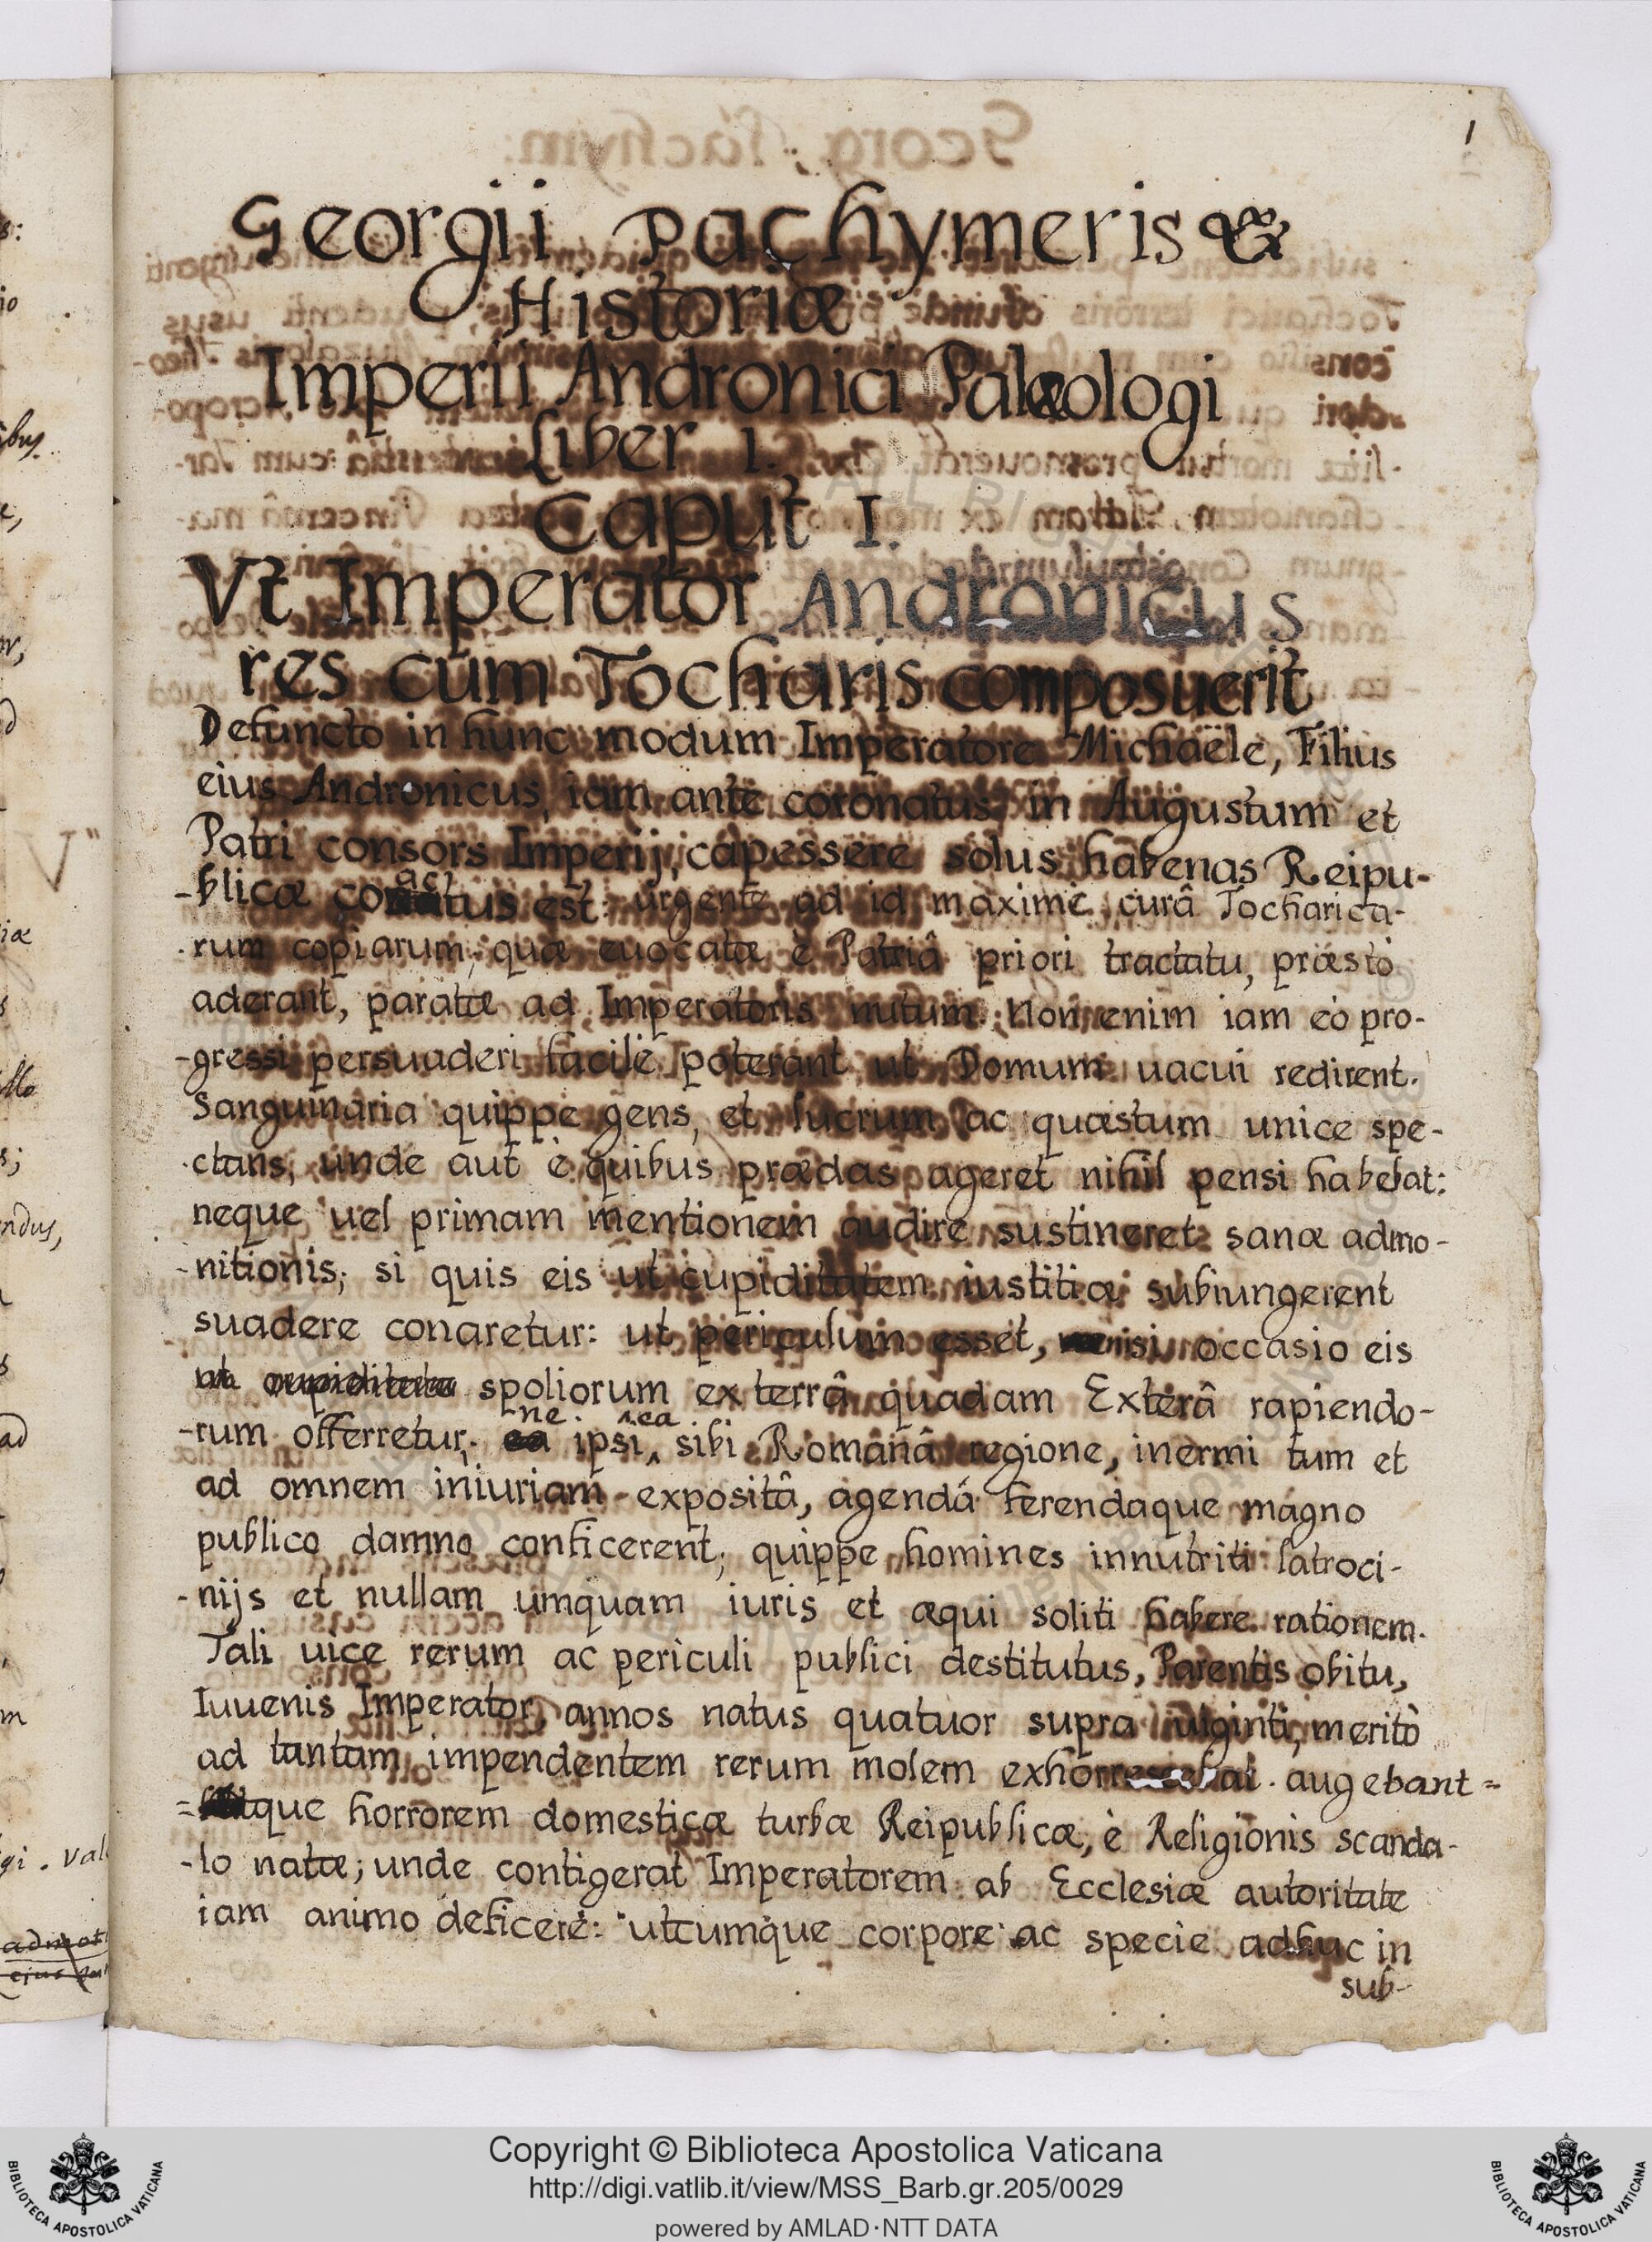 1
Georgii Pachymeris
Historiæ
Imperii Andronici Palæologi
Liber 1.
Caput I.
Vt Imperator Andronicus
res cum Tocharis composuerit
Defuncto in hunc modum Imperatore Michaële, Filius
eius Andronicus, iam ante coronatus in Augustum et
Patri consors Imperij, capessere solus habenas Reipu-
-blicæ coactus est: urgente ad id maximè curâ Tocharica-
-rum copiarum; quæ euocatæ è Patriâ priori tractatu, præstò
aderant, paratæ ad Imperatoris nutum. Non enim iam eò pro-
-gressi persuaderi facile poterant ut Domum uacui redirent.
Sanguinaria quippe gens, et lucrum ac quæstum unice spe-
-ctans, unde aut è quibus prædas ageret nihil pensi habebat:
neque uel primam mentionem audire sustineret sanæ admo-
-nitionis; si quis eis ut cupiditatem iustitiæ subiungerent
suadere conaretur: ut periculum esset, nisi occasio eis
spoliorum ex terrâ quadam Exterâ rapiendo-
-rum offerretur; ne ipsi sibi Romanâ regione, inermi tum et
ad omnem iniuriam exposita, agendâ ferendaque magno
publico damno conficerent; quippe homines innutriti latroci-
-nijs et nullam umquam iuris et æqui soliti habere rationem.
Tali uice rerum ac periculi publici destitutus, Parentis obitu,
Iuuenis Imperator, annos natus quatuor supra uiginti, meritò
ad tantam impendentem rerum molem exhorrescebat. augebant=
=que horrorem domesticæ turbæ Reipublicæ, è Religionis scanda-
-lo natæ; unde contigerat Imperatorem ab Ecclesiæ autoritate
iam animo deficere: utcumque corpore ac specie adhuc in
sub-
Copyright © Biblioteca Apostolica Vaticana
http://digi.vatlib.it/view/MSS_Barb.gr.205/0029
powered by AMLAD·NTT DATA
BIBLIOTECA APOSTOLICA VATICANA
BIBLIOTECA APOSTOLICA VATICANA